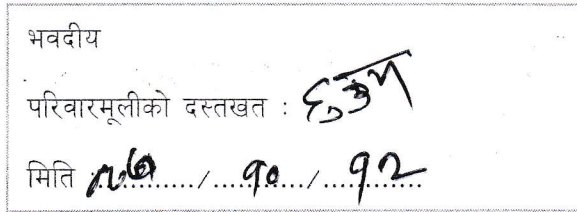 भवदीय
परिवारमूलीको दस्तखत :
मिति ........./....१०..../....१२........